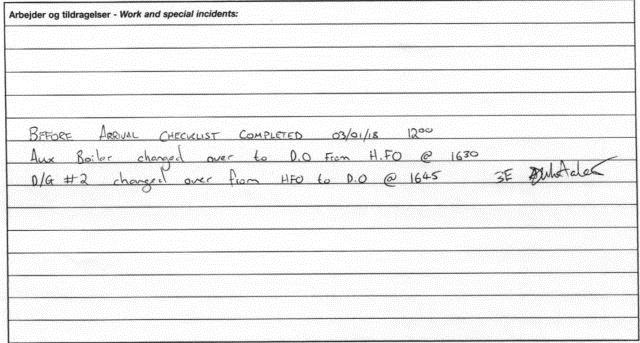 Arbejder og tildragelser - Work and special incidents:
BEFORE ARRIVAL CHECKLIST COMPLETED 03/01/18 1200
Aux Boiler changed over to D.O From H.FO @ 1630
D/G #2 changed over from HFO to D.O @ 1645 3E